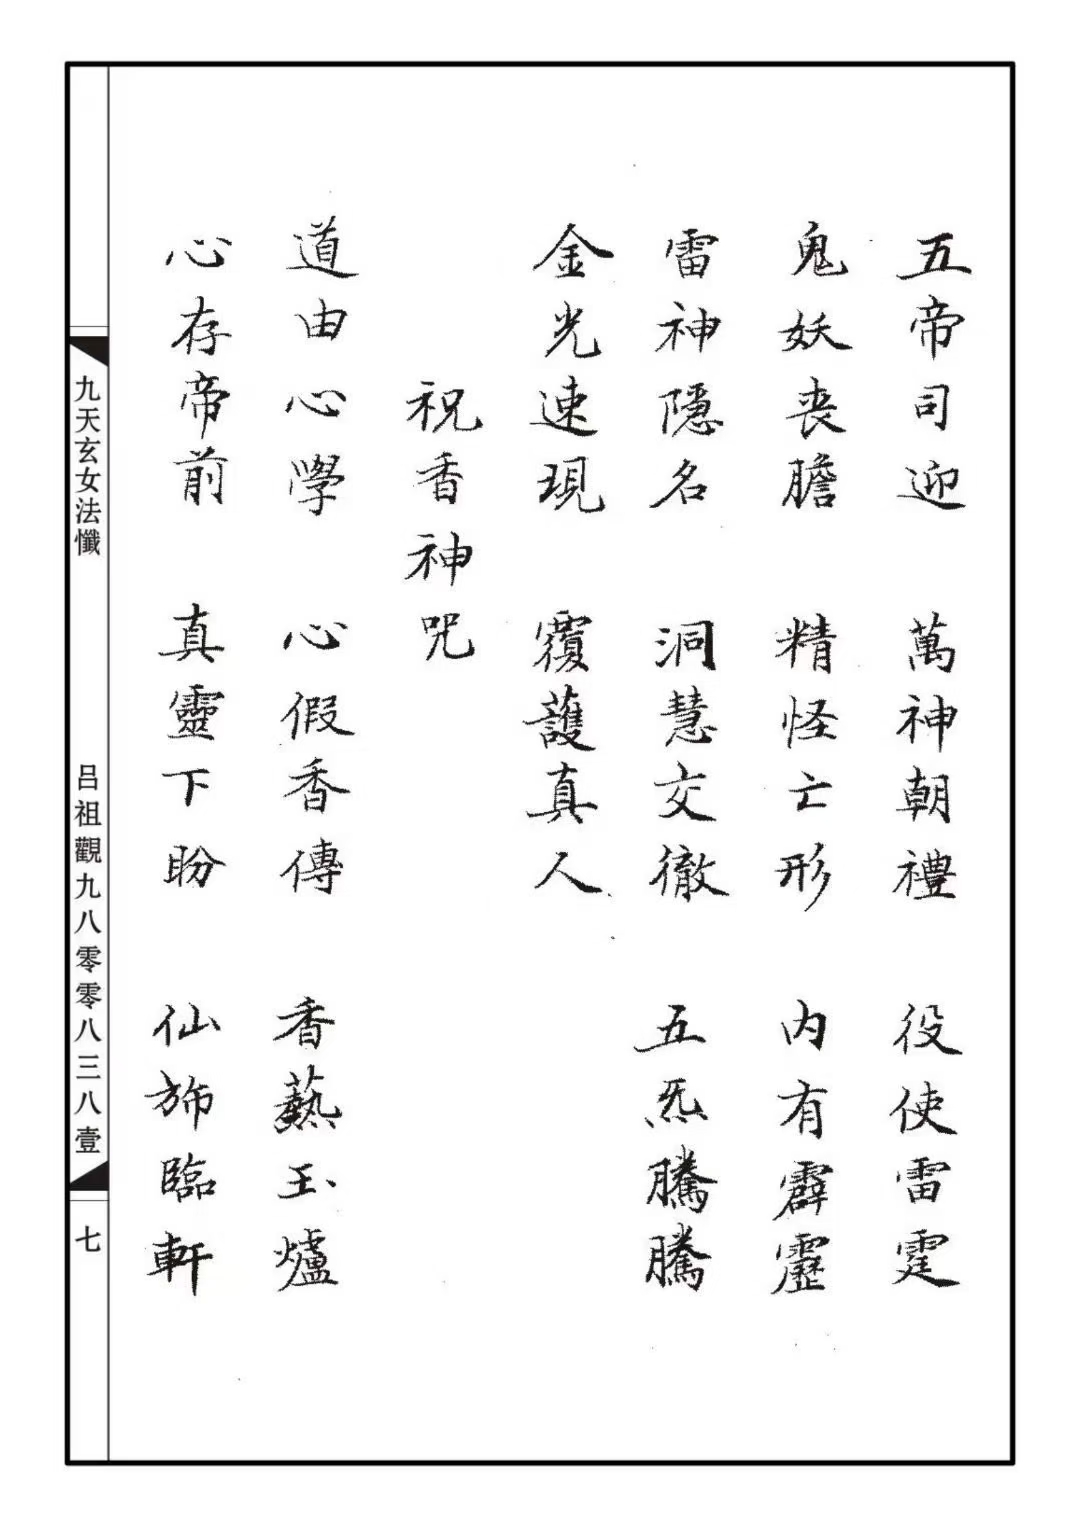 五帝司迎　萬神朝禮　役使雷霆
鬼妖喪膽　精怪亡形　內有霹靂
雷神隱名　洞慧交徹　五炁騰騰
金光速現　覆護真人
祝香神咒
道由心學　心假香傳　香爇玉爐
心存帝前　真靈下盼　仙旆臨軒
九天玄女法懺
吕祖觀九八零零八三八壹
七